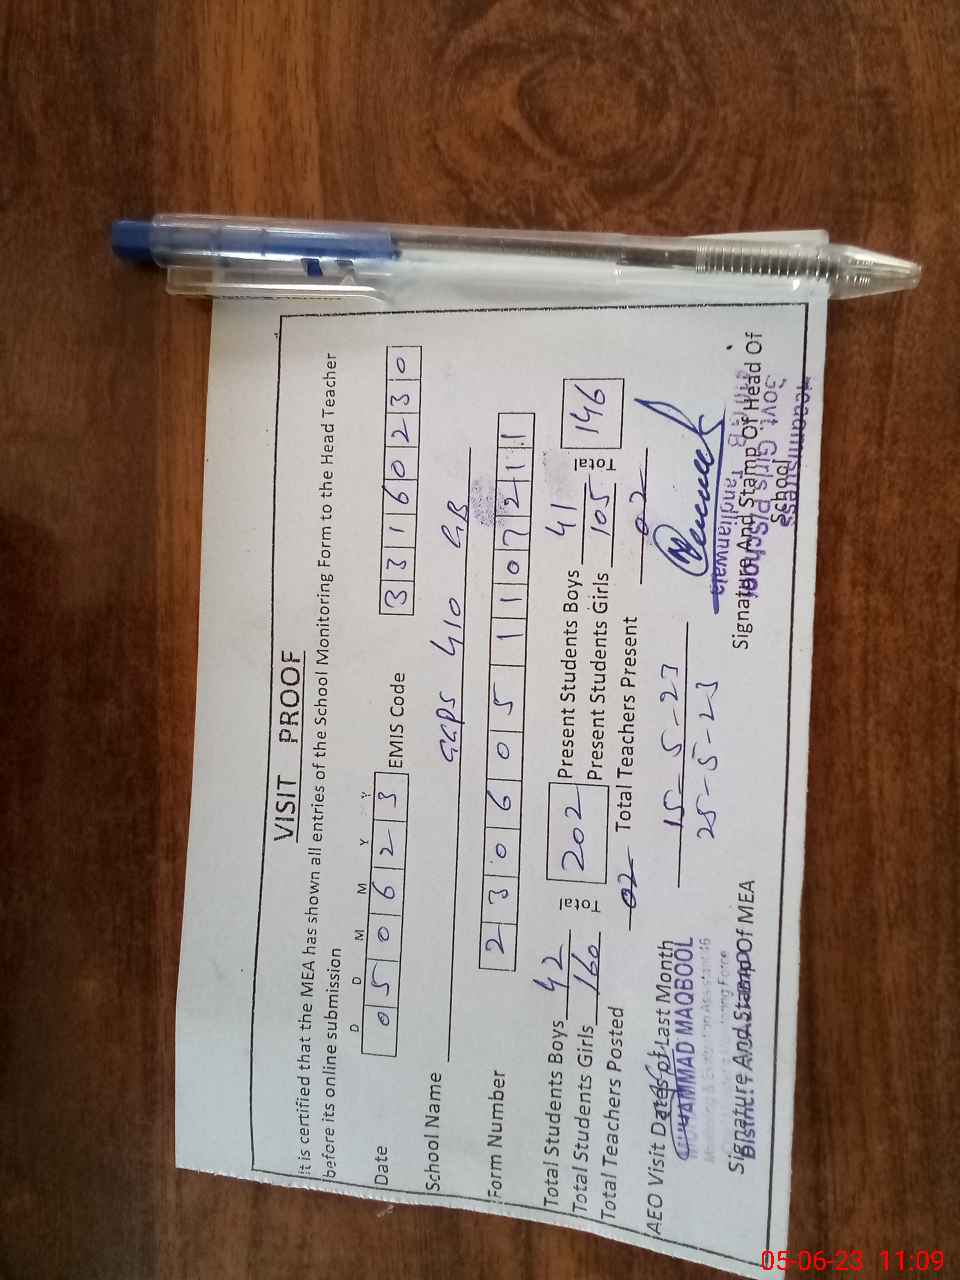 VISIT PROOF
It is certified that the MEA has shown all entries of the School Monitoring Form to the Head Teacher
before its online submission
D D M M Y Y
Date 0 5 0 6 2 3 EMIS Code 3 3 1 6 0 2 3 0
School Name GGPS 410 GB
Form Number 2 3 0 6 0 5 1 1 0 7 2 1 1
Total Students Boys 42 Total 202 Present Students Boys 41 Total 146
Total Students Girls 160 Present Students Girls 105
Total Teachers Posted 02 Total Teachers Present 02
AEO Visit Dates of Last Month 15-5-23
25-5-23
MUHAMMAD MAQBOOL
Monitoring & Evaluation Assistant
Signature And Stamp Of MEA
Signature And Stamp Of Head Of
School
Headmistress
Govt. Girls P/School
Tandlianwala
05-06-23 11:09